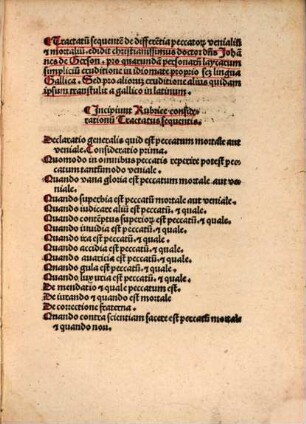 ¶Tractatū sequentē de differētia peccatoꝝ venialiū
et mortaliū. edidit christianissimus doctor dn̄s Johā
nes de Gerson. pro quarundā personarū laycarum
simpliciū eruditione in idiomate proprio sez lingua
Gallica. Sed pro aliorū eruditione alius quidam
ipsum transtulit a gallico in latinum.
¶Incipiunt Rubrice conside
rationū Tractatus sequentis.
Declaratio generalis quid est peccatum mortale aut
veniale. Consideratio prima.
Quomodo in omnibus peccatis reperire potest pec
catum tantūmodo veniale.
Quando vana gloria est peccatum mortale aut ve
niale.
Quando superbia est peccatū mortale aut veniale.
Quando iudicare aliū est peccatū. ⁊ quale.
Quando cōtēptus superioꝝ est peccatum. ⁊ quale.
Quando inuidia est peccatum. ⁊ quale.
Quando ira est peccatū. ⁊ quale.
Quando accidia est peccatum. ⁊ quale.
Quando auaricia est peccatum. ⁊ quale.
Quando gula est peccatum. ⁊ quale.
Quando luxuria est peccatum. ⁊ quale.
De mendatio ⁊ quale peccatum est.
De iurando ⁊ quando est mortale
De correctione fraterna.
Quando contra scientiam facere est peccatū mortale
⁊ quando non.